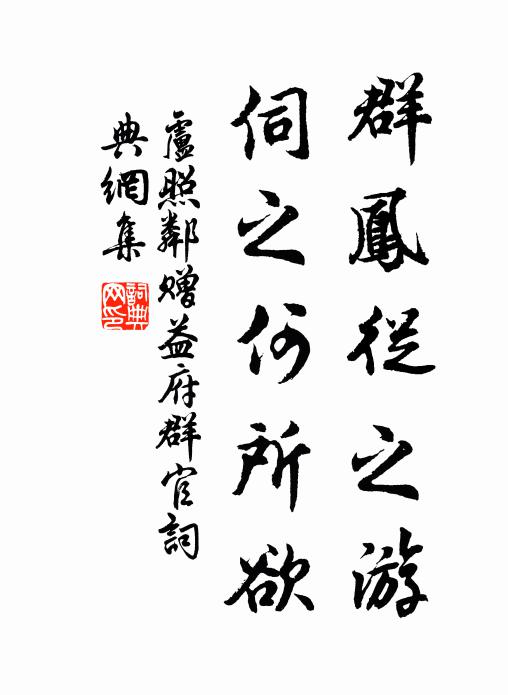 群鳳從之游
伺之何所欲
盧照鄰贈益府群官詞
典網集
詞典網印